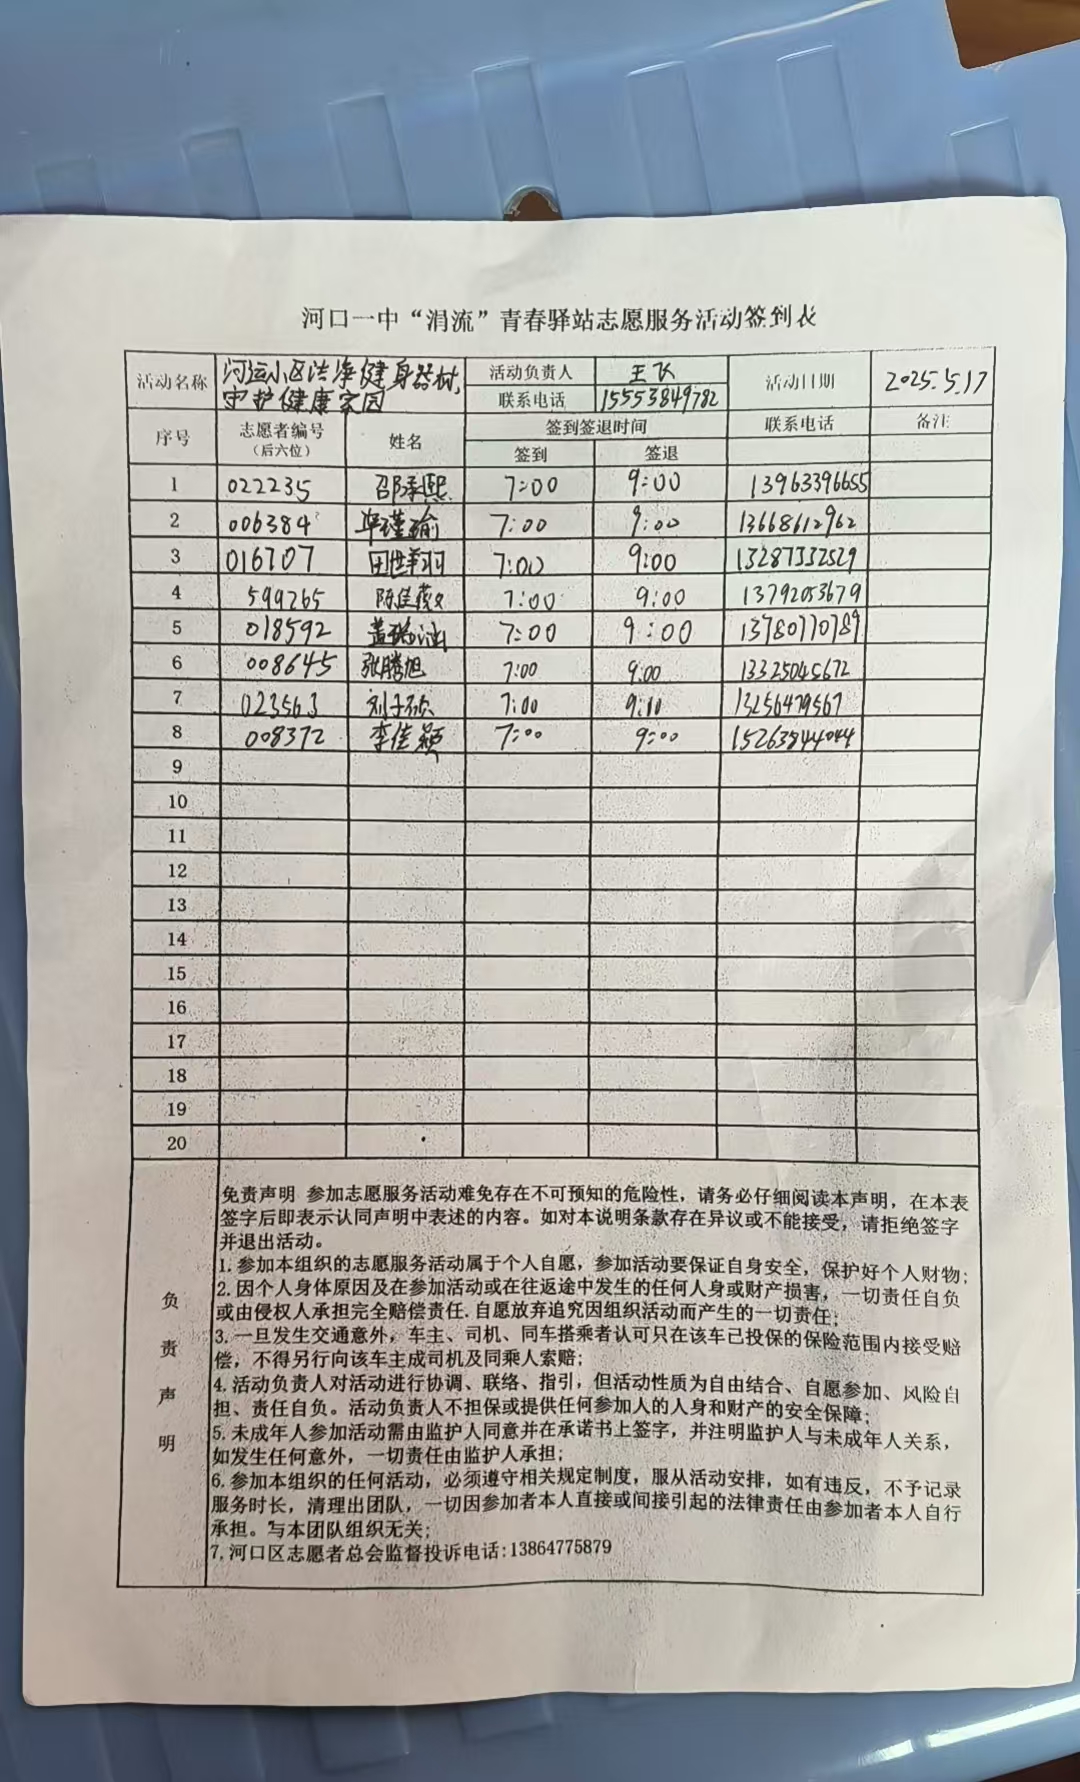 河口一中“涓流”青春驿站志愿服务活动签到表
活动名称 河运小区洁净健身器材,守护健康家园 活动负责人 王飞 活动日期 2025.5.17
联系电话 15553849782
序号 志愿者编号（后六位） 姓名 签到签退时间 联系电话 备注
签到 签退
1 022235 邵季熙 7:00 9:00 13963396655
2 006384 毕瑾瑜 7:00 9:00 13668612962
3 016707 田世羽 7:00 9:00 13287332529
4 599265 陈佳 7:00 9:00 13792053679
5 018592 盖 涵 7:00 9:00 13780770789
6 008645 张腾旭 7:00 9:00 13325045672
7 023563 刘子硕 7:00 9:10 13256479567
8 008372 李佳颖 7:00 9:00 15263844044
9
10
11
12
13
14
15
16
17
18
19
20
负责声明
免责声明 参加志愿服务活动难免存在不可预知的危险性，请务必仔细阅读本声明，在本表
签字后即表示认同声明中表述的内容。如对本说明条款存在异议或不能接受，请拒绝签字
并退出活动。
1.参加本组织的志愿服务活动属于个人自愿，参加活动要保证自身安全，保护好个人财物；
2.因个人身体原因及在参加活动或在往返途中发生的任何人身或财产损害，一切责任自负
或由侵权人承担完全赔偿责任.自愿放弃追究因组织活动而产生的一切责任；
3.一旦发生交通意外，车主、司机、同车搭乘者认可只在该车已投保的保险范围内接受赔
偿，不得另行向该车主成司机及同乘人索赔；
4.活动负责人对活动进行协调、联络、指引，但活动性质为自由结合、自愿参加、风险自
担、责任自负。活动负责人不担保或提供任何参加人的人身和财产的安全保障；
5.未成年人参加活动需由监护人同意并在承诺书上签字，并注明监护人与未成年人关系，
如发生任何意外，一切责任由监护人承担；
6.参加本组织的任何活动，必须遵守相关规定制度，服从活动安排，如有违反，不予记录
服务时长，清理出团队，一切因参加者本人直接或间接引起的法律责任由参加者本人自行
承担。与本团队组织无关；
7.河口区志愿者总会监督投诉电话:13864775879